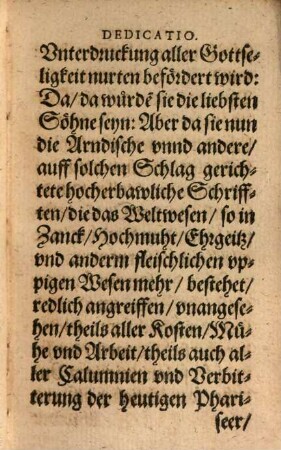 DEDICATIO.
Vnterdruckung aller Gottse-
ligkeit nurten befördert wird:
Da/ da würdẽ sie die liebsten
Söhne seyn: Aber da sie nun
die Arndische vnnd andere/
auff solchen Schlag gerich-
tete hocherbawliche Schriff-
ten/ die das Weltwesen/ so in
Zanck/ Hochmuht/ Ehrgeitz/
vnd anderm fleischlichen vp-
pigen Wesen mehr/ bestehet/
redlich angreiffen/ vnangese-
hen/ theils aller Kosten/ Mü-
he vnd Arbeit/ theils auch al-
ler Calumnien vnd Verbit-
terung der heutigen Phari-
seer/